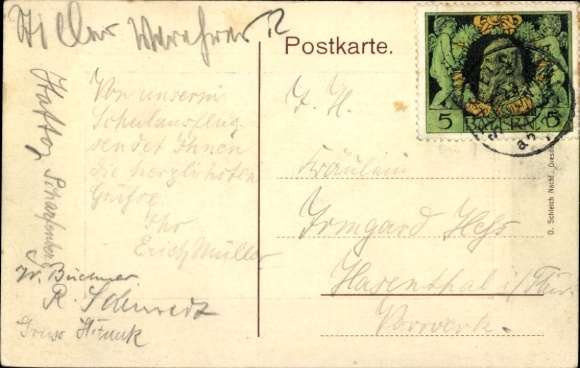 Stiller Verehrer
Postkarte.
Von unserm
Schulausflug
sendet Ihnen
die herzlichsten
Grüße
Ihr
Erich Müller
Scharfenberg
W. Büchner
R. Schmidt
Gruss
5 BAYERN 5
F. H.
Fräulein
Irmgard Hess
Hasenthal i/Thür.
Vorwerk.
O. Schleich Nachf., Dresden